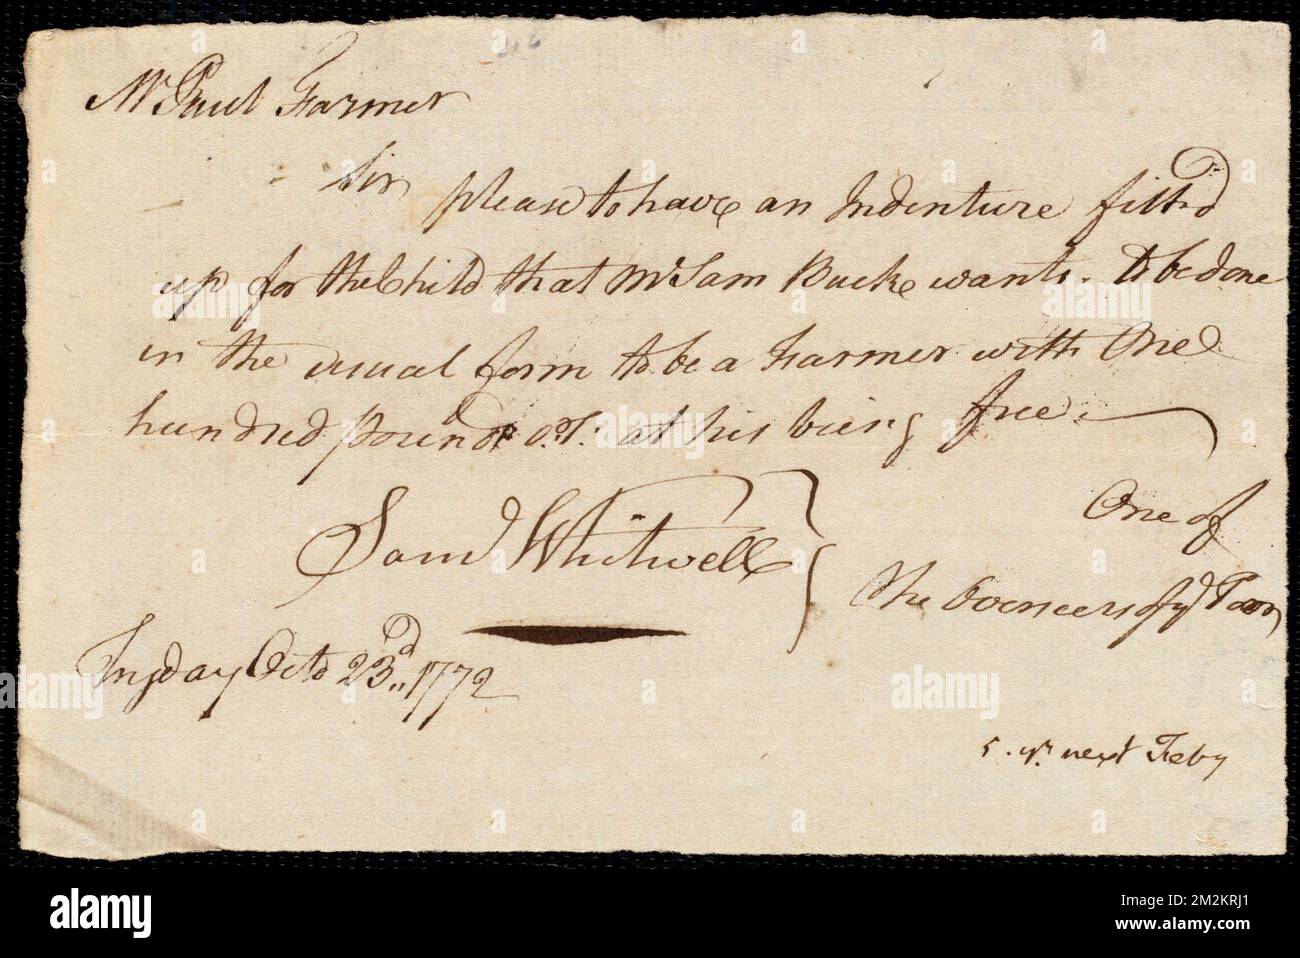 Mr Paul Farmer
Sir please to have an Indenture fill'd
up for the Child that Mr Sam Bucke wants. to be done
in the usual form to be a Farmer with One
hundred pounds O.T. at his being free.
One of
Sam'l Whitwell
the Overseers of ye Town
Tuysday Octo 23d, 1772
5. yr. next Feby
alamy
alamy
Image ID: 2M2KRJ1
www.alamy.com